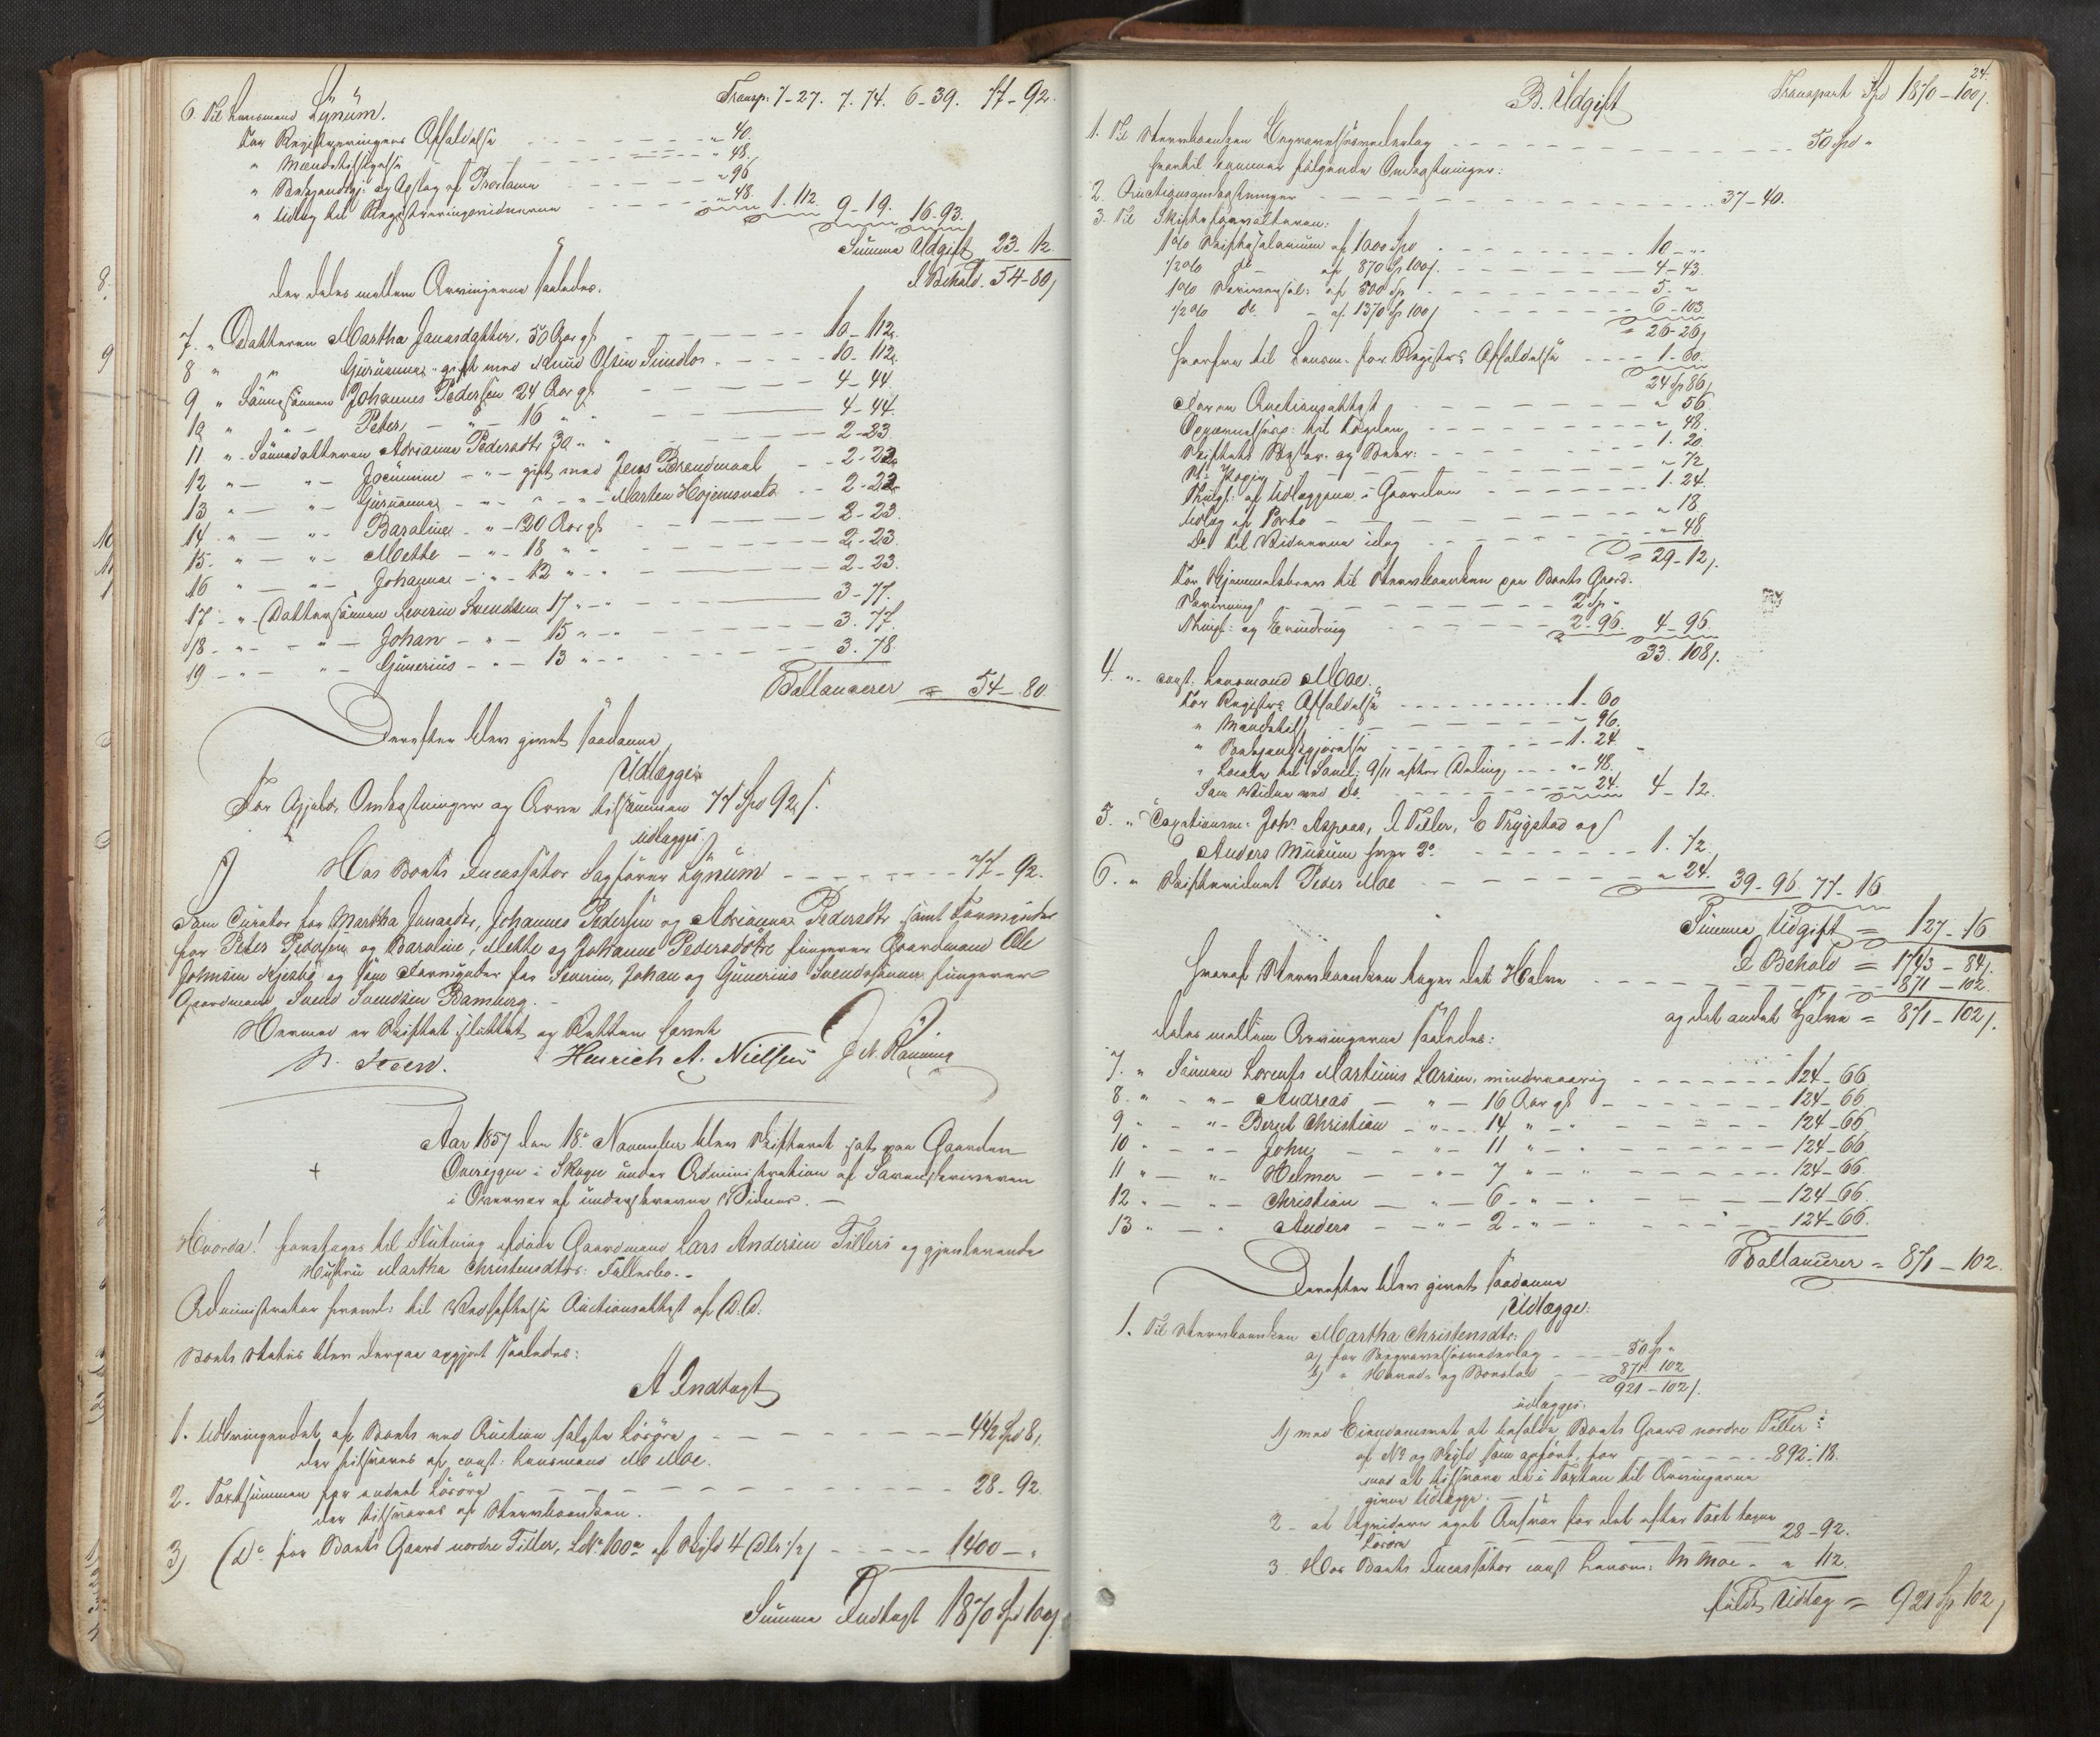 Transp: 7-27. 7.74. 6-39. 77-92.
6. Til Lensmand Lynum.
For Registreringens Afholdelse - - - " 40.
" Mandskifttagelse - - - " 48.
" Bekjendtgj: og Opslag af Proclama - - - " 96
" Udlæg til Registreringsvidnerne - - - " 48. 1.112. 9-19. 16-93.
Summa Udgift 23-12
I Behold. 54-80
der deles mellem Arvingerne saaledes.
7. " Datteren Martha Jonasdatter, 50 Aar gl - - - 10-112.
8 " " Gurianna gift med Knud Olsen - - - 10-112.
9 " Sønnesønnen Johannes Pedersen 24 Aar gl - - - 4-44.
10 " " Peter - " - 16 " " - - - 4-44.
11 " Sønnedatteren Adrianna Pedersdtr 30 " " - - - 2-23
12 " - " - Jocumine - " - gift med Jens Brendmoal - - 2-23.
13 " - " - Gurianna - " - " - Morten Hojemsvald - - 2-23
14 " - " - Baroline - " - 20 Aar gl - - - 2-23.
15 - " - " - Mette - " - 18 " " - - - 2-23.
16 " - " - Johanna - " - 12 " " - - - 2-23.
17 - " - Dattersønnen Severin Svendsen 17 " - " - - - 3-77.
18 - " - " - Johan - " - 15 " - " - - - 3.77.
19 - " - " - Gunerius - " - 13 " - " - - - 3.78.
Ballancerer = 54-80
Derefter blev givet saadanne
Udlægge
For Gjeld, Omkostninger og Arv tilsammen 77 Spd 92 s.
udlægges
Hos Boets Incassator Sagfører Lynum - - - 77-92.
Som Curator for Martha Jonasdtr, Johannes Pedersen og Adrianna Pedersdtr samt Formynder
for Peter Pedersen og Baroline, Mette og Johanne Pedersdøtre fungerer Gaardmand Ole
Johnsen og som Formynder for Severin, Johan og Gunerius Svendsønner fungerer
Gaardmand Svend Svendsen Bamberg.
Hermed er Skiftet sluttet og Retten hævet
B. Steen. Henrich A. Nielsen J. N. Rønning
Aar 1857 den 18de November blev Skifteret sat paa Gaarden
+ Overeggen i Skogn under Administration af Sorenskriveren
i Overvær af underskrevne Vidner. -
Hvorda! foretages til Slutning afdøde Gaardmand Lars Andersen Tillers og gjenlevende
Hustru Martha Christensdtrs. Fællesbo. -
Administrator fremL: til Vedheftelse Auctionsattest af D.D.
Boets Status blev derpaa opgjort saaledes:
A Indtægt
1. Udbringendet af Boets ved Auction solgte Løsøre - - - 442 Spd 8 s
der tilsvares af const: Lensmand M Moe.
2. Taxtsummen for andet Løsøre - - - 28-92.
der tilsvares af Stervboenken.
3) Do for Boets Gaard nordre Tiller, LNo 100 af Skyld 4 Dlr 1/2 - - - 1400 - "
Summa Indtægt 1870 Spd 100 s
24.
B. Udgift Transport Spd 1870-100 s.
1. Til Stervboenken Begravelsesvederlag - - - 50 Spd "
hvortil kommer følgende Omkostninger:
2. Auctionsomkostninger - - - 37-40.
3. Til Skifteforvalteren:
1% Skiftesalarium af 1000 Spd - - - 10 - "
1/2% do - af 870 Sp 100 s. - - - 4-43.
1% af 500 Sp - - - 5. "
1/2% do - af 1370 Sp 100 s - - - 6-103
= 26-26
herfra til Lensm. for Registrs Afholdelse - - - 1-60.
24 Sp 86
Auctionsattest - - - " 56.
- - - " 48.
Skiftets - - - 1. 20.
- - - " 72
af Udlæggene i Gaarden - - - 1. 24.
Udlæg af Porto - - - " 18.
Do til Vidnerne idag - - - " 48
= 29-12 s.
For Hjemmelsbrev til Stervboenken paa Boets Gaard.
- - - 2 Sp -
Thingl: og Erindring - - - 2-96. 4-96.
33. 108 s.
4. " const: Lensmand Moe.
For Registrs Afholdelse - - - 1. 60
" Mandskift - - - " 96.
" Bekjendtgjørelse - - - 1. 24
" Locale til Saml: 9/11 efter Deling - - " 48.
Som Vidne ved do - - - " 24. 4-12.
5. " Taxationsm: Johs Aspaas, I Tiller, E Trygstad og
Anders Musum hver - - - 1. 72.
6. " Skiftevidnet Peder Moe - - - " 24. 39-96. 77-16
Summa Udgift = 127-16
I Behold = 1743-84 s.
hvoraf Stervboenken tager det Halve - - - 871-102.
og det andet Halve = 871-102 s.
deles mellem Arvingerne saaledes:
7. " Sønnen Lorents Martinus Larsen, mindreaarig - - - 124-66
8. " - " - Andreas - " - 16 Aar gl - - - 124-66.
9 " - " - Bernt Christian - " - 14 " - " - - - 124-66.
10 " - " - John - " - 11 " - " - - - 124-66
11 " - " - Helmer - " - 7 " - " - - - 124-66.
12 " - " - Christian - " - 6 " - " - - - 124-66.
13 " - " - Anders - " - 2 " - " - - - 124-66.
Ballancerer = 871-102.
Derefter blev givet saadanne
Udlægge:
1. Til Stervboenken Martha Christensdtr:
a) for Begravelsesvederlag - - - 50 Sp "
b) " Hoved- og Boeslod - - - 871-102
921-102 s.
udlægges:
1) med Eiendomsret at beholde Boets Gaard nordre Tiller
af No og Skyld som anført, for - - - 892-18.
mod at tilsvare de i Taxten til Arvingerne
givne Udlægge. -
2 - at liquidere eget Ansvar for det efter Taxt tagne
Løsøre - - - 28-92.
3. Hos Boets Incassator const Lensm: M Moe - " 112.
fuldt Udlæg = 921 Sp 102 s